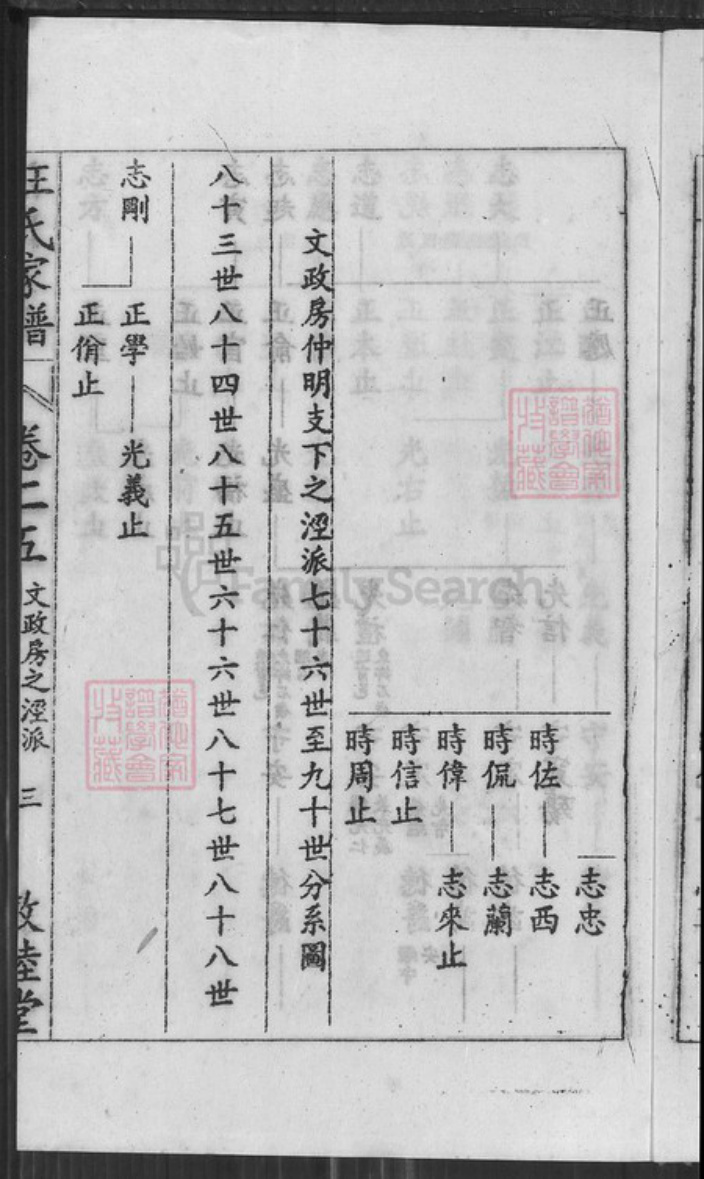 志忠
時佐 志西
時侃 志蘭
時偉 志來止
時信止
時周止
文政房仲明支下之涇派七十六世至九十世分系圖
八十三世八十四世八十五世六十六世八十七世八十八世
志剛 正學 光義止
正脩止
汪氏家譜 卷二五 文政房之涇派 三 敦睦堂
FamilySearch